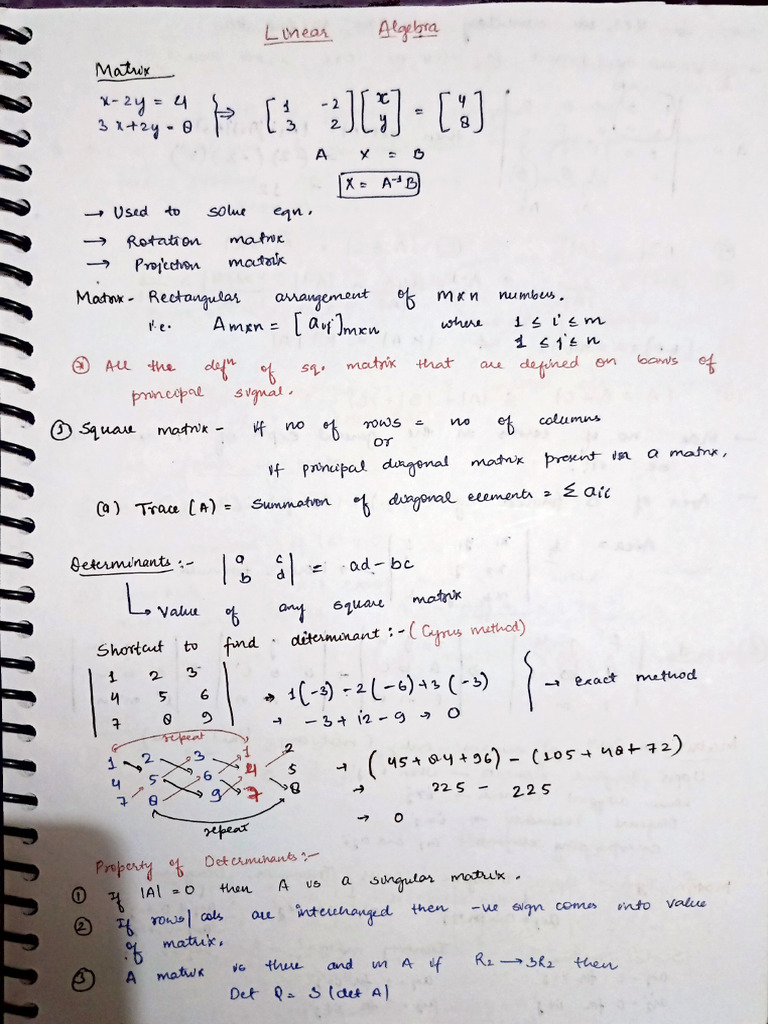 Linear Algebra
Matrix
x-2y = 4
3x+2y = 8 } ⇒ [1 -2; 3 2] [x; y] = [4; 8]
A X = B
X = A⁻¹B
→ Used to solve eqn.
→ Rotation matrix
→ Projection matrix
Matrix - Rectangular arrangement of m×n numbers.
i.e. Am×n = [aij]m×n where 1 ≤ i ≤ m
1 ≤ j ≤ n
* All the defn of sq. matrix that are defined on basis of
principal signal.
① Square matrix - if no of rows = no of columns
or
if principal diagonal matrix present in a matrix.
(a) Trace (A) = Summation of diagonal elements = Σ aii
Determinants :- |a c; b d| = ad - bc
↳ Value of any square matrix
Shortcut to find determinant :- (Cyrus method)
1 2 3
4 5 6 → 1(-3) - 2(-6) + 3(-3) } → exact method
7 8 9 → -3 + 12 - 9 → 0
repeat
1 2 3 1 2 → (45 + 84 + 96) - (105 + 48 + 72)
4 5 6 4 5 → 225 - 225
7 8 9 7 8 → 0
repeat
Property of Determinants :-
① If |A| = 0 then A is a singular matrix.
② If rows/cols are interchanged then -ve sign comes into value
of matrix.
③ A matrix is there and in A if R2 → 3R2 then
Det P = 3 (det A)